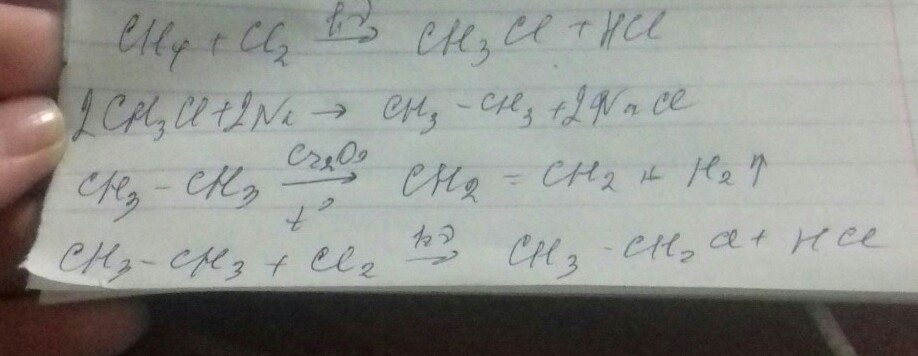 CH₄ + Cl₂ hν→ CH₃Cl + HCl
2CH₃Cl + 2Na → CH₃ - CH₃ + 2NaCl
CH₃ - CH₃ Cr₂O₃→t° CH₂ = CH₂ + H₂↑
CH₃ - CH₃ + Cl₂ hν→ CH₃ - CH₂Cl + HCl